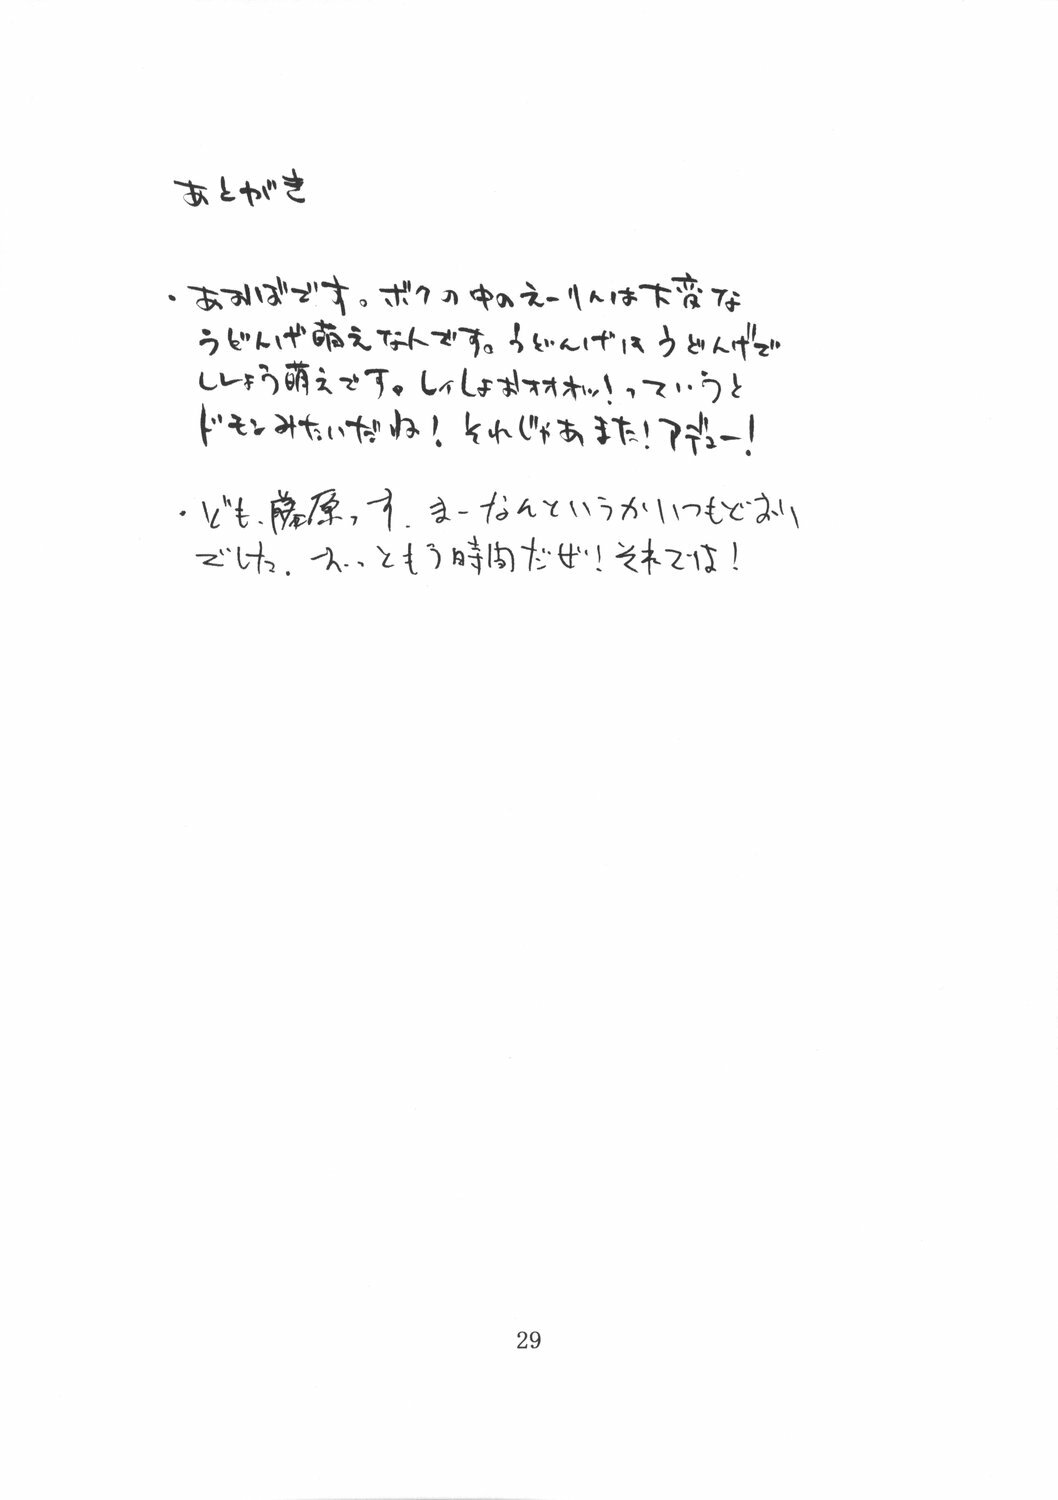 あとがき
・あおばです。ボクの中のえーりんは大変な
うどんげ萌えなんです。うどんげはうどんげで
ししょう萌えです。しィしょおォオオッ!っていうと
ドモンみたいだね!それじゃあまた!アデュー!
・ども、藤原っす。まーなんというかいつもどおり
でした。えっともう時間だぜ!それでは!
29